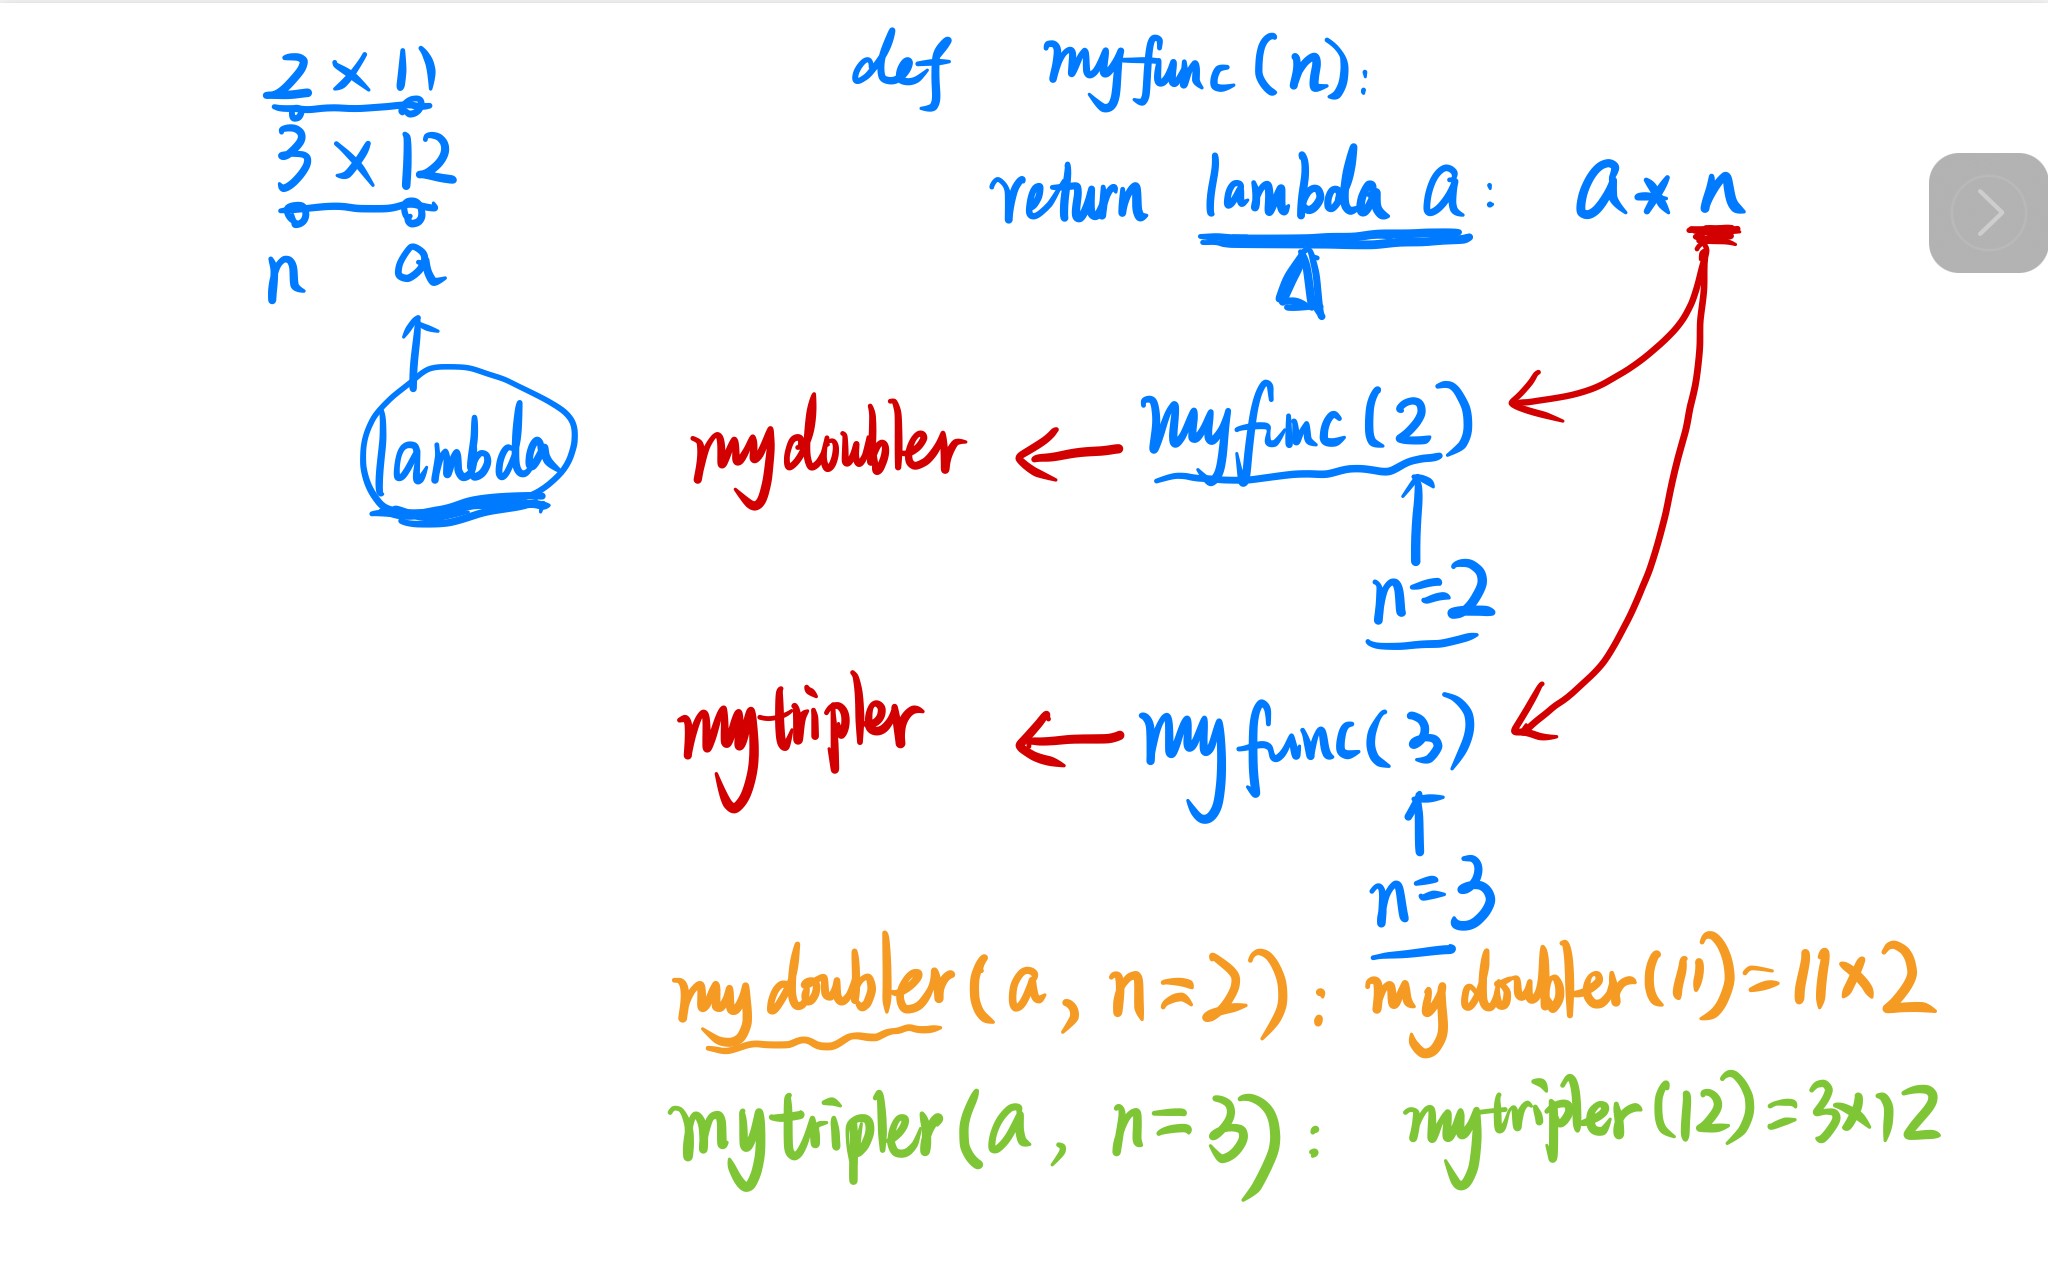 2 × 11
3 × 12
n a
lambda
def myfunc(n):
return lambda a: a * n
mydoubler ← myfunc(2)
n=2
mytripler ← myfunc(3)
n=3
mydoubler(a, n=2): mydoubler(11)=11×2
mytripler(a, n=3): mytripler(12)=3×12